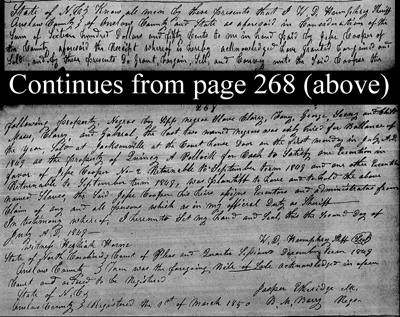 State of N.C. } Know all men by these presents that I W. D. Humphrey Sheriff
Onslow County } of Onslow County and State as aforesaid in Consideration of the
Sum of Sixteen hundred Dollars and fifty Cents to me in hand paid by Jope Cooper of
the County aforesaid the Receipt whereof is hereby acknowledged have Granted bargained and
Sold and by these presents Do Grant, bargain, Sell, and Convey unto the Said Cooper the
Continues from page 268 (above)
268
following property, Negroes
Mary Clary, and Gabriel, the last two named negroes was only sold for Ballance of
the Year, Sold at Jacksonville at the Court house Door on the first monday in July A.D.
1849 as the property of Quincy A Pollock for Cash to Satisfy one Execution in
favor of Jope Cooper No 2 Returnable to September term 1849 and one other Execution
Returnable to September term 1849, was Plaintiff to have and to hold the above
named Slaves, the Said Jope Cooper his heirs Executors and administrators from
Claim of any and all persons which is in my official Duty as Sheriff
In testimony whereof, I hereunto Set my hand and Seal this the Second Day of
July A.D. 1849
W. D. Humphrey Shff Seal
State of North Carolina } Court of Pleas and Quarter Sessions December term 1849
Onslow County } Then was the foregoing Bill of Sale acknowledged in open
Court and ordered to be Registered
Jasper Etheridge Clk.
State of N.C.
Onslow County } Registered the 1st of March 1850